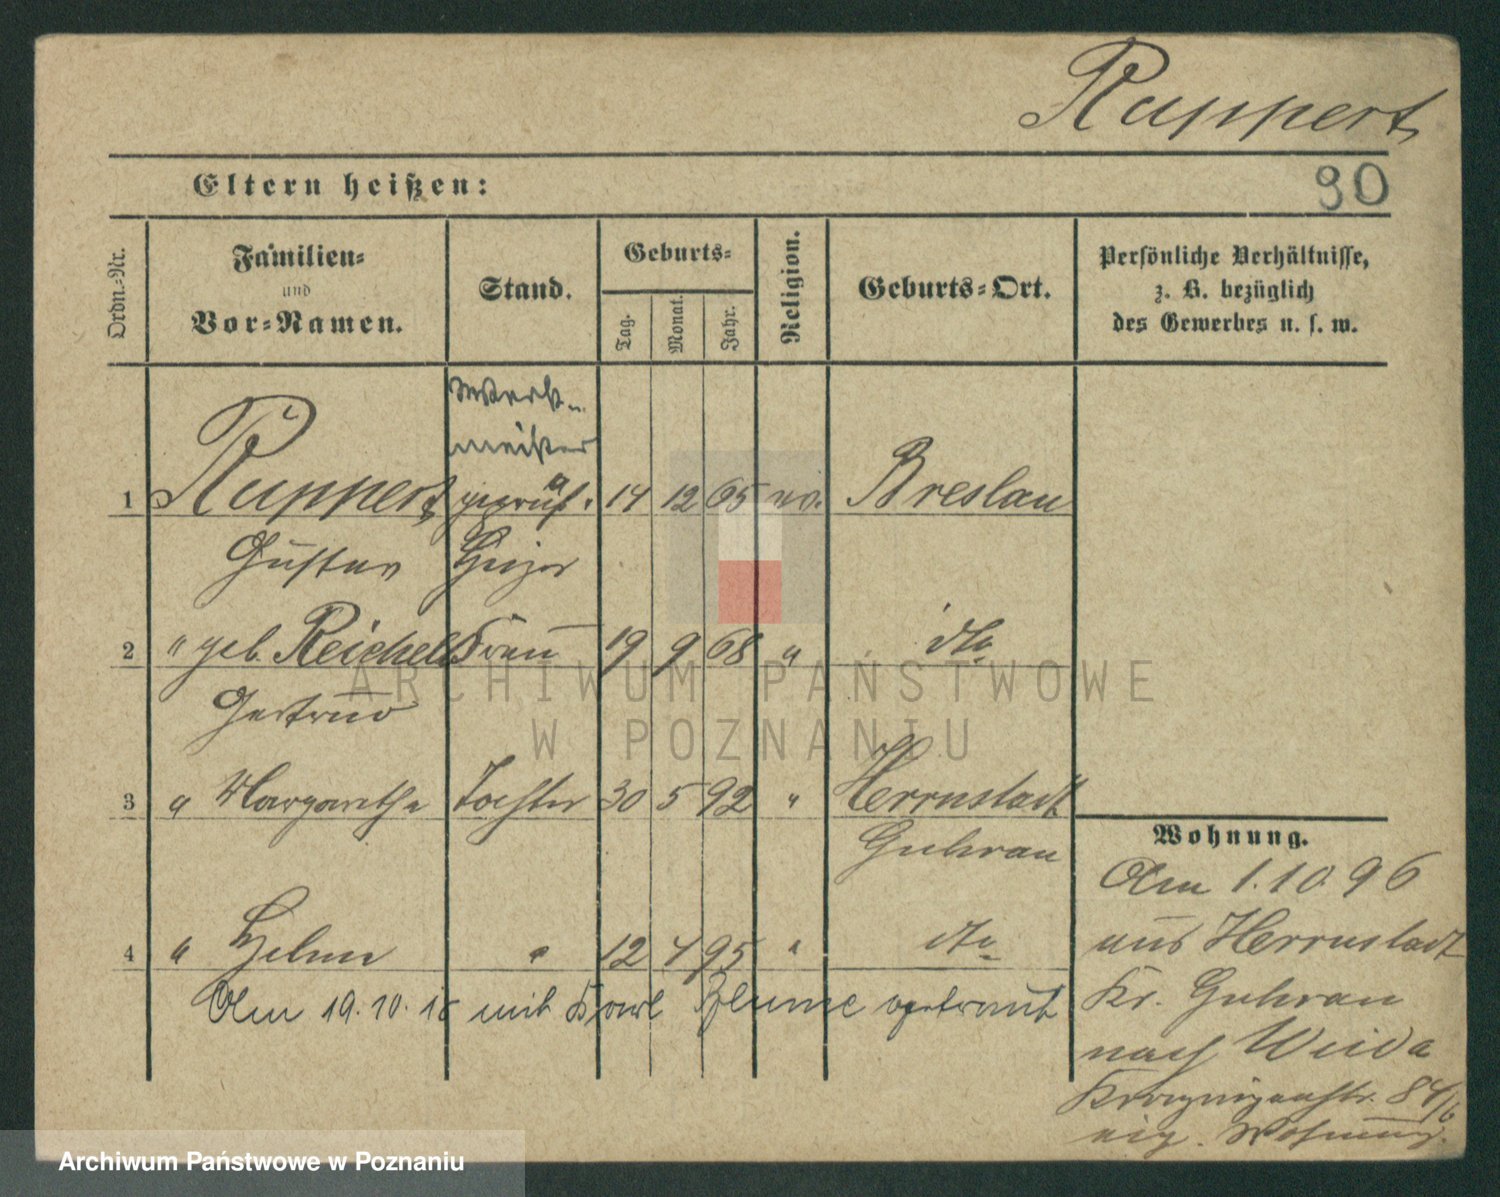 Ruppert
Eltern heißen:
90
Ordn.-Nr.
Familien-
und
Vor-Namen.
Stand.
Geburts-
Tag.
Monat.
Jahr.
Religion.
Geburts-Ort.
Persönliche Verhältnisse,
z. B. bezüglich
des Gewerbes u. s. w.
Werk-
meister
1 Ruppert geprüf. 14 12 65 Breslau
Gustav Heizer
2 " geb. Reichelt Frau 19 9 68 " dto
Gertrud
3 " Margarethe Tochter 30 5 92 " Herrnstadt
Guhrau
4 " Helene " 12 4 95 " dto
Am 19.10. mit Karl Blume getraut
Wohnung.
Am 1.10.96
aus Herrnstadt
Kr. Guhrau
nach Wilda
Kronprinzenstr. 84/6
eig. Wohnung.
ARCHIWUM PAŃSTWOWE
W POZNANIU
Archiwum Państwowe w Poznaniu